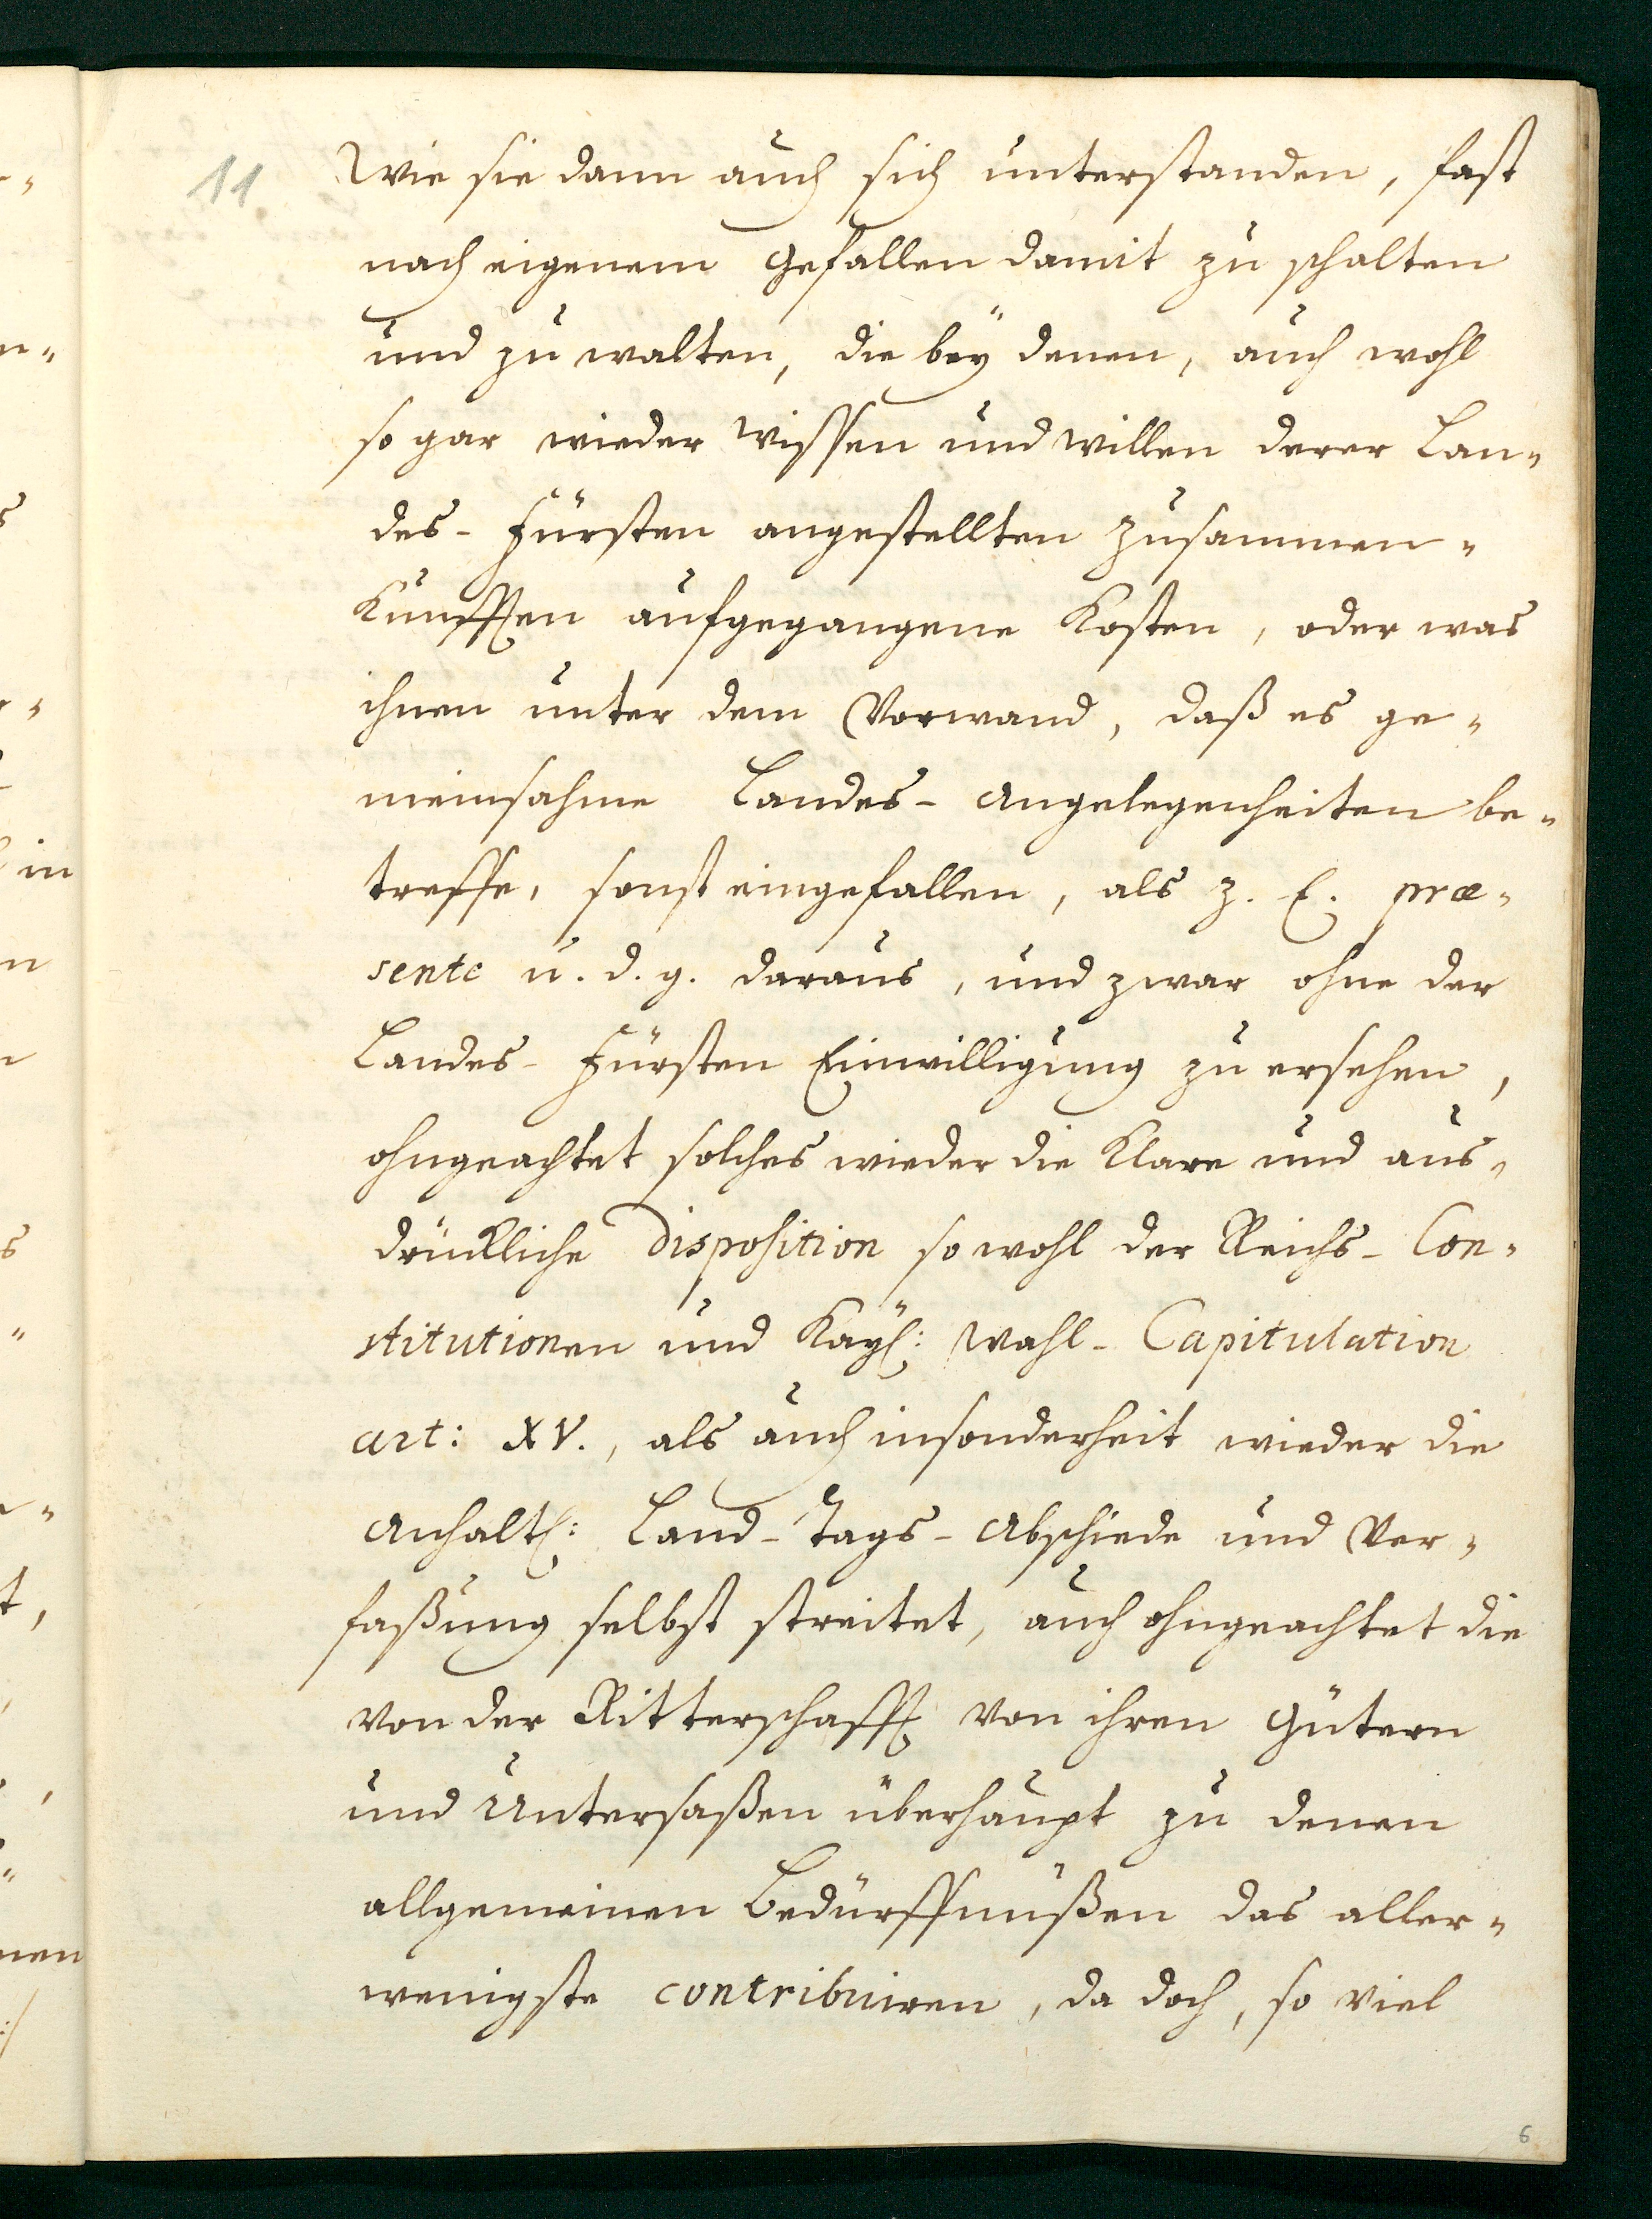 11. Wie sie dann auch sich unterstanden, fast
nach eigenem Gefallen damit zu schalten
und zu walten, die bey denen, auch wohl
so gar wieder Wissen und Willen derer Lan-
des-Fürsten angestellten Zusammen-
Künfften aufgegangene Kosten, oder was
ihnen unter dem Vorwand, daß es ge-
meinsahme Landes-Angelegenheiten be-
treffe, sonst eingefallen, als z. E. præ-
sente u. d. g. daraus, und zwar ohne der
Landes-Fürsten Einwilligung zu ersehen,
ohngeachtet solches wieder die Klare und aus-
drückliche Disposition so wohl der Reichs-Con-
stitutionen und Kayß: Wahl-Capitulation
art: XV., als auch insonderheit wieder die
Anhaltß: Land-Tags-Abschiede und Ver-
faßung selbst streitet, auch ohngeachtet die
von der Ritterschafft von ihren Gütern
und Untersaßen überhaupt zu denen
allgemeinen Bedürffnüßen das aller-
wenigste contribuiren, da doch, so viel
6